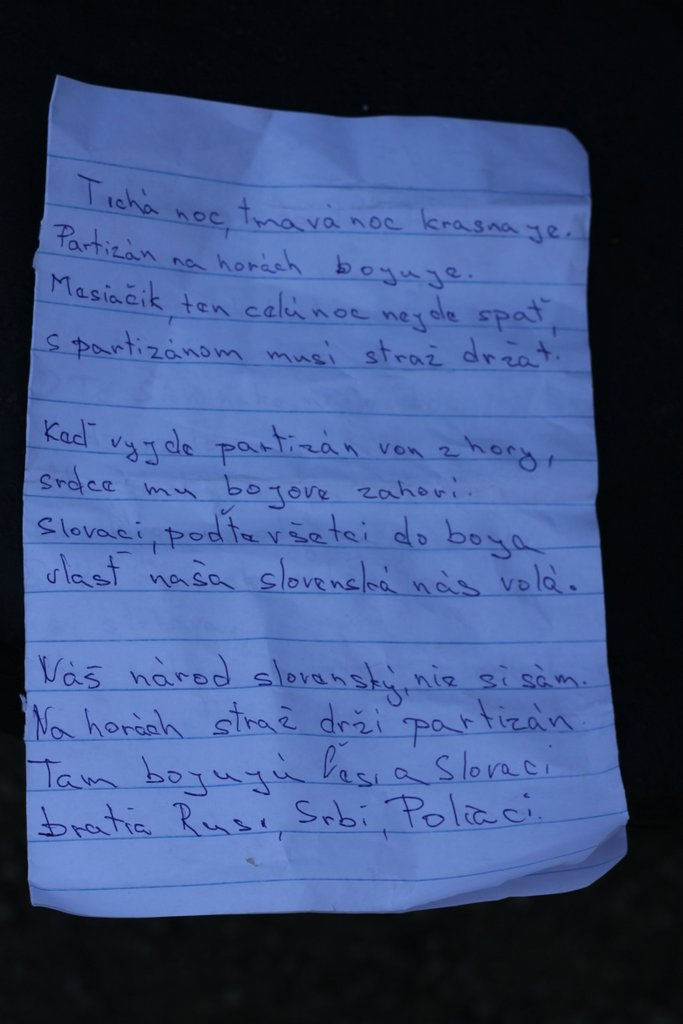 Tichá noc, tmavá noc krasna ye.
Partizán na horách boyuye.
Mesiačik, ten celú noc neyde spať,
s partizánom musí straž držať.
Keď vyyde partizán von z hory,
srdce mu boyove zahorí.
Slovaci, poďte všetci do boya
vlasť naša slovenská nás volá.
Náš národ slovanský, nie si sám.
Na horách straž drží partizán.
Tam boyuyú Česi a Slovaci
bratia Rusi, Srbi, Poliaci.